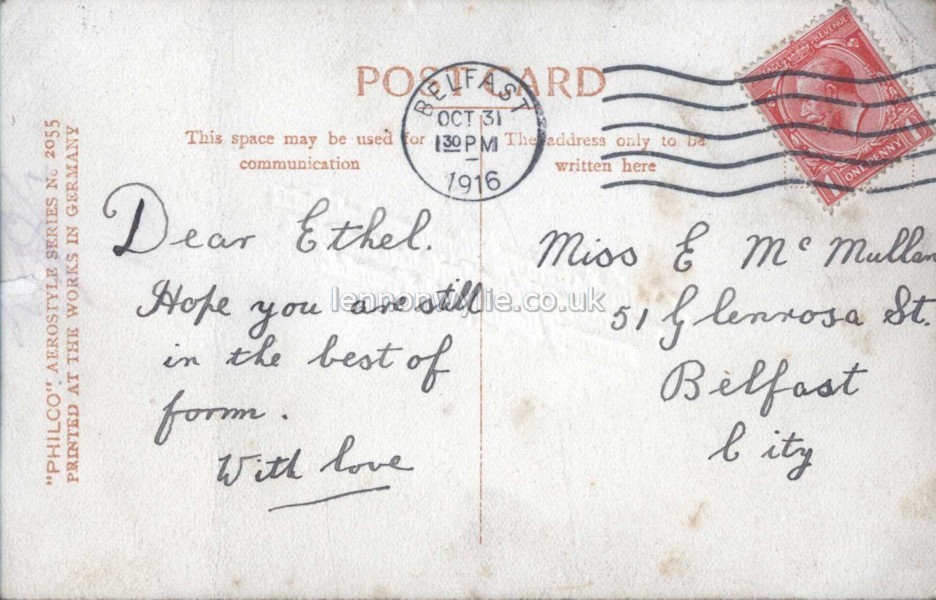 POST CARD
BELFAST
OCT 31
1 30 PM
1916
POSTAGE REVENUE
ONE PENNY
This space may be used for
communication
The address only to be
written here
"PHILCO" AEROSTYLE SERIES No 2055
PRINTED AT THE WORKS IN GERMANY
Dear Ethel.
Hope you are still
in the best of
form.
With love
Miss E Mc Mullan
51 Glenrosa St.
Belfast
City
lennonwylie.co.uk